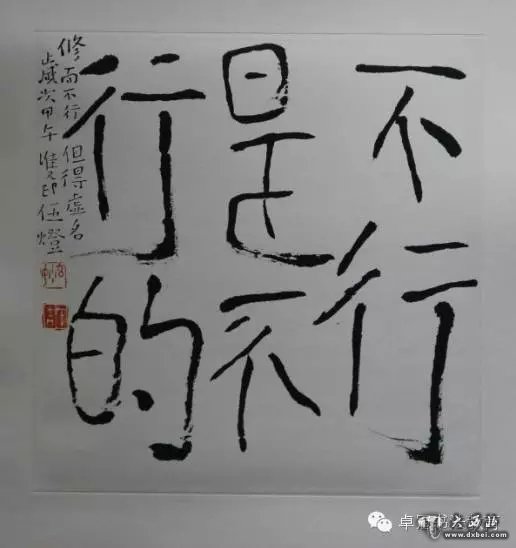 不行
是不
行的
修而不行但得虚名
止歲次甲午
伍燈
www.dxbei.com